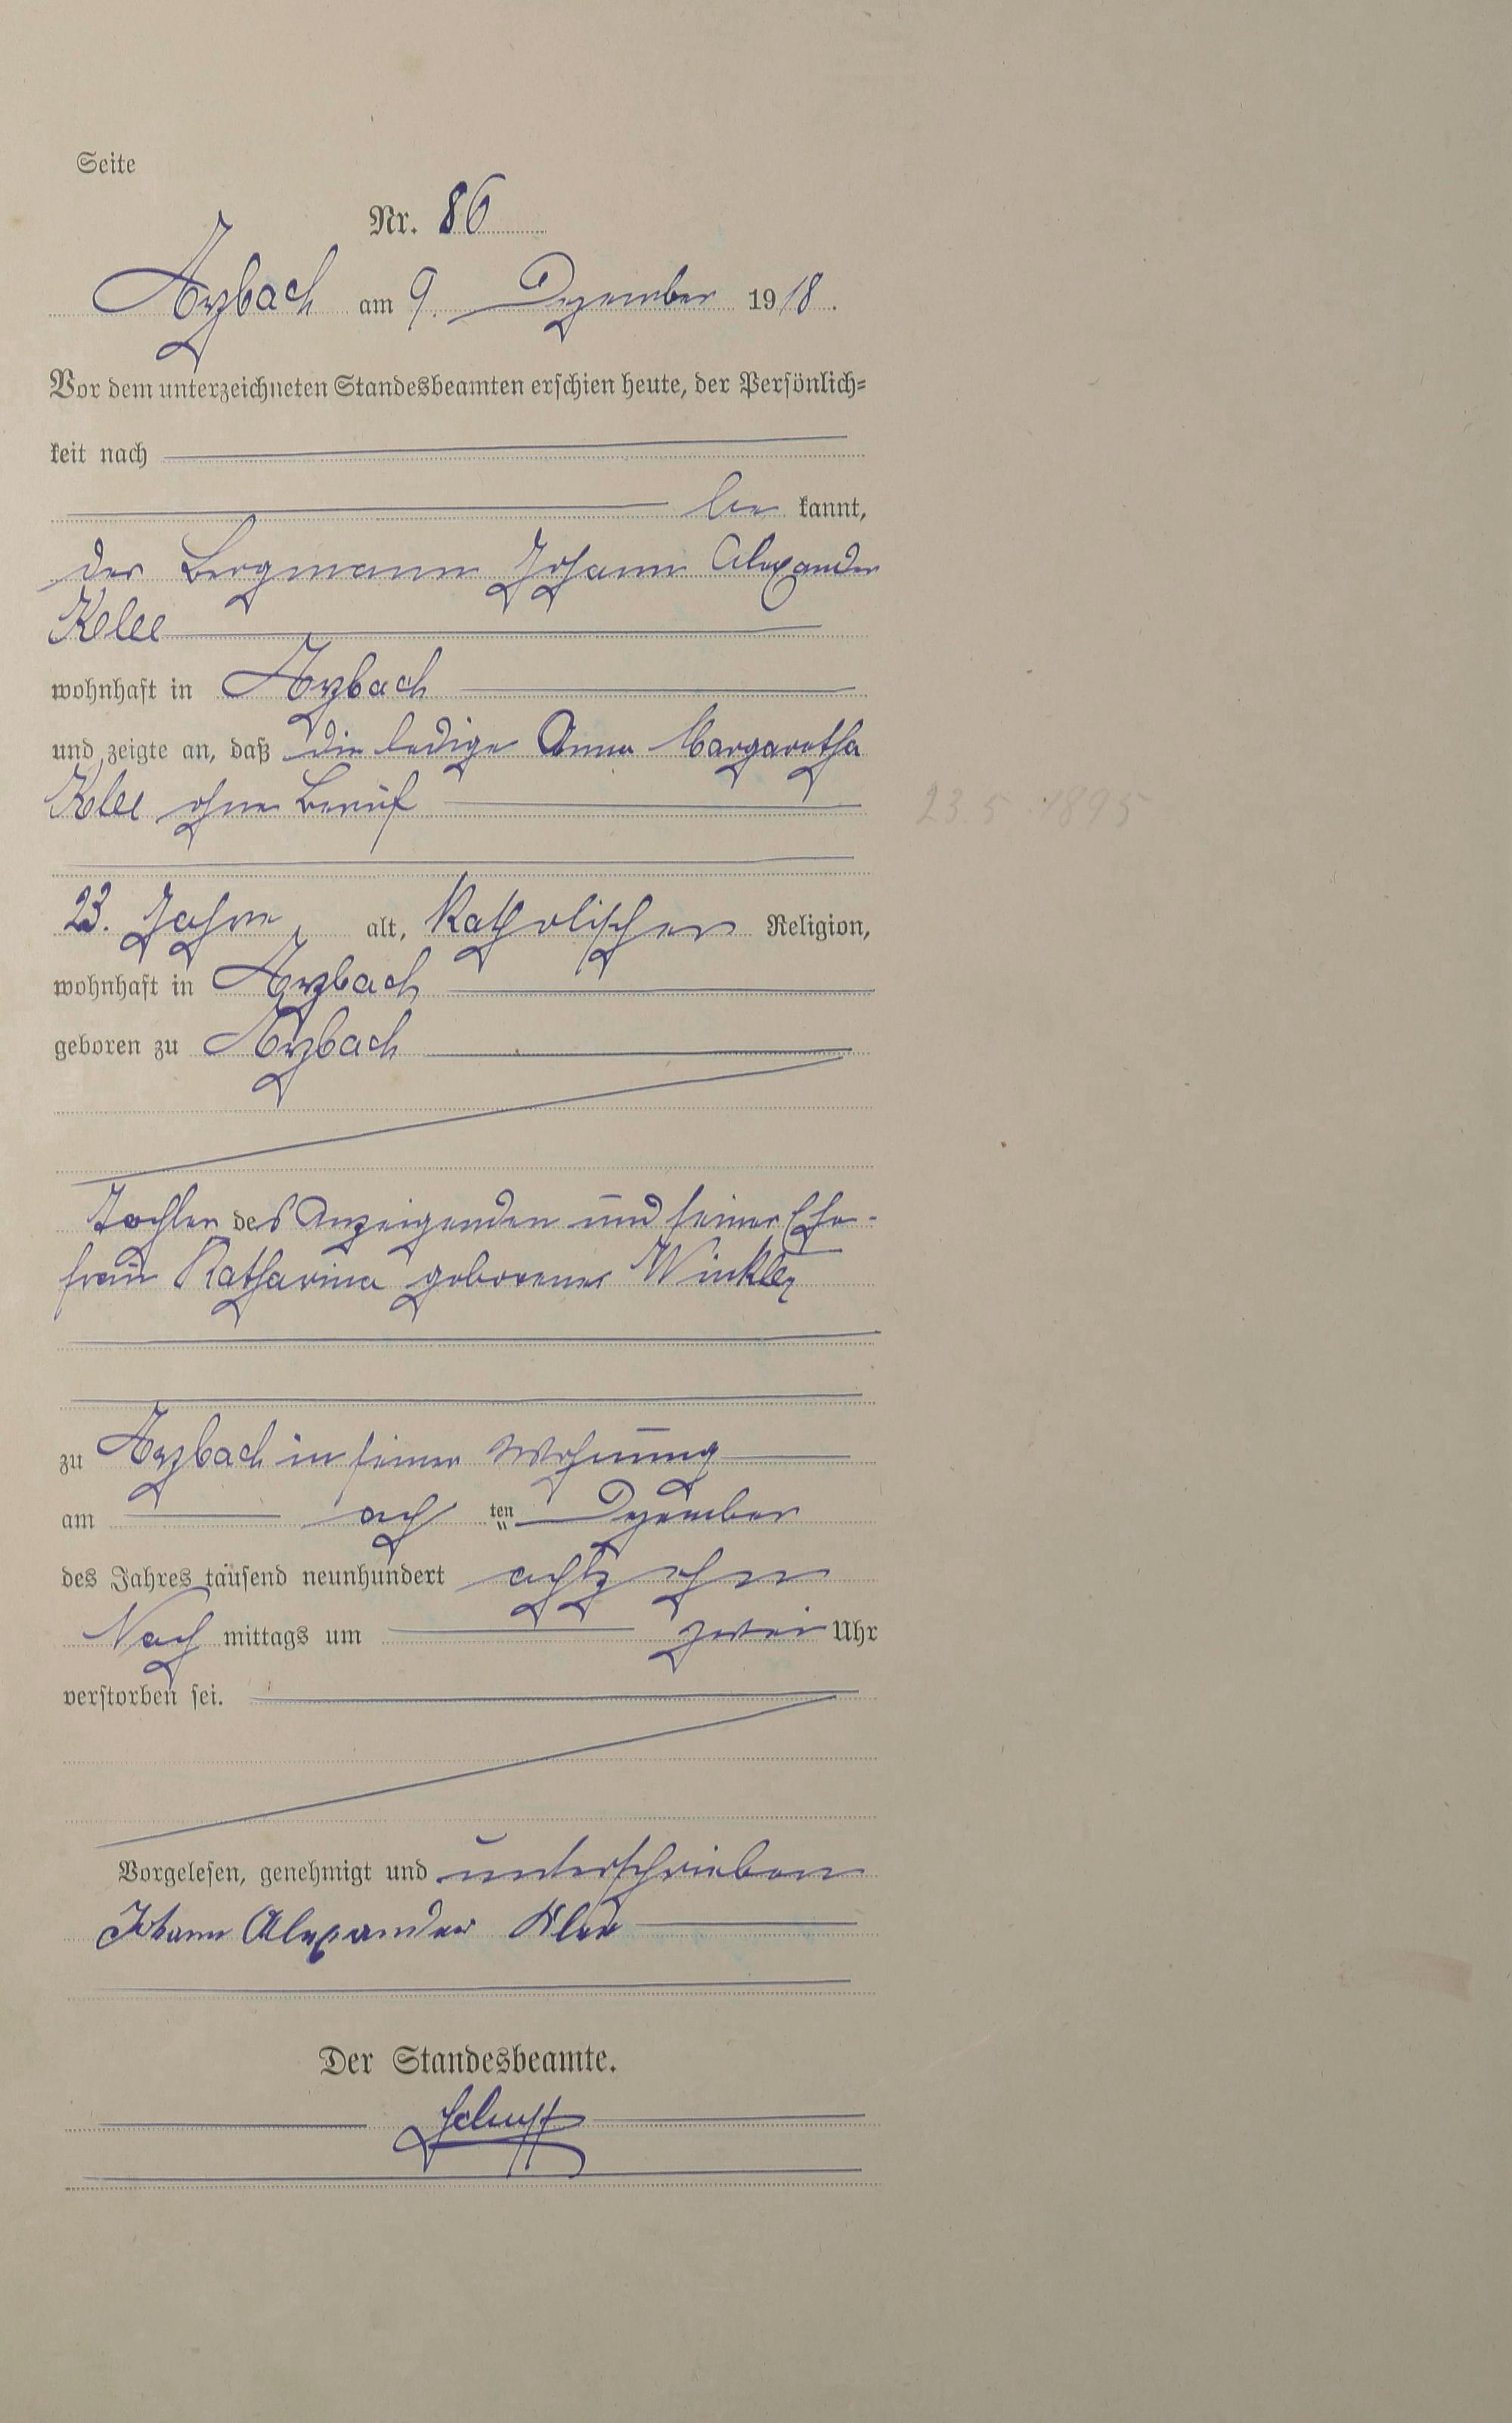 Seite
Nr. 86
Arzbach am 9. Dezember 1918.
Vor dem unterzeichneten Standesbeamten erschien heute, der Persönlich=
keit nach
be kannt,
der Bergmann Johann Alexander
Klee
wohnhaft in Arzbach
und zeigte an, daß die ledige Anna Margaretha
Klee ohne Beruf
23.5.1895
23. Jahre alt, katholischer Religion,
wohnhaft in Arzbach
geboren zu Arzbach
Tochter des Anzeigenden und seiner Ehe-
frau Katharina geborener Winkler
zu Arzbach in seiner Wohnung
am ach ten Dezember
des Jahres tausend neunhundert achtzehn
Nach mittags um zwei Uhr
verstorben sei.
Vorgelesen, genehmigt und unterschrieben
Johann Alexander Klee
Der Standesbeamte.